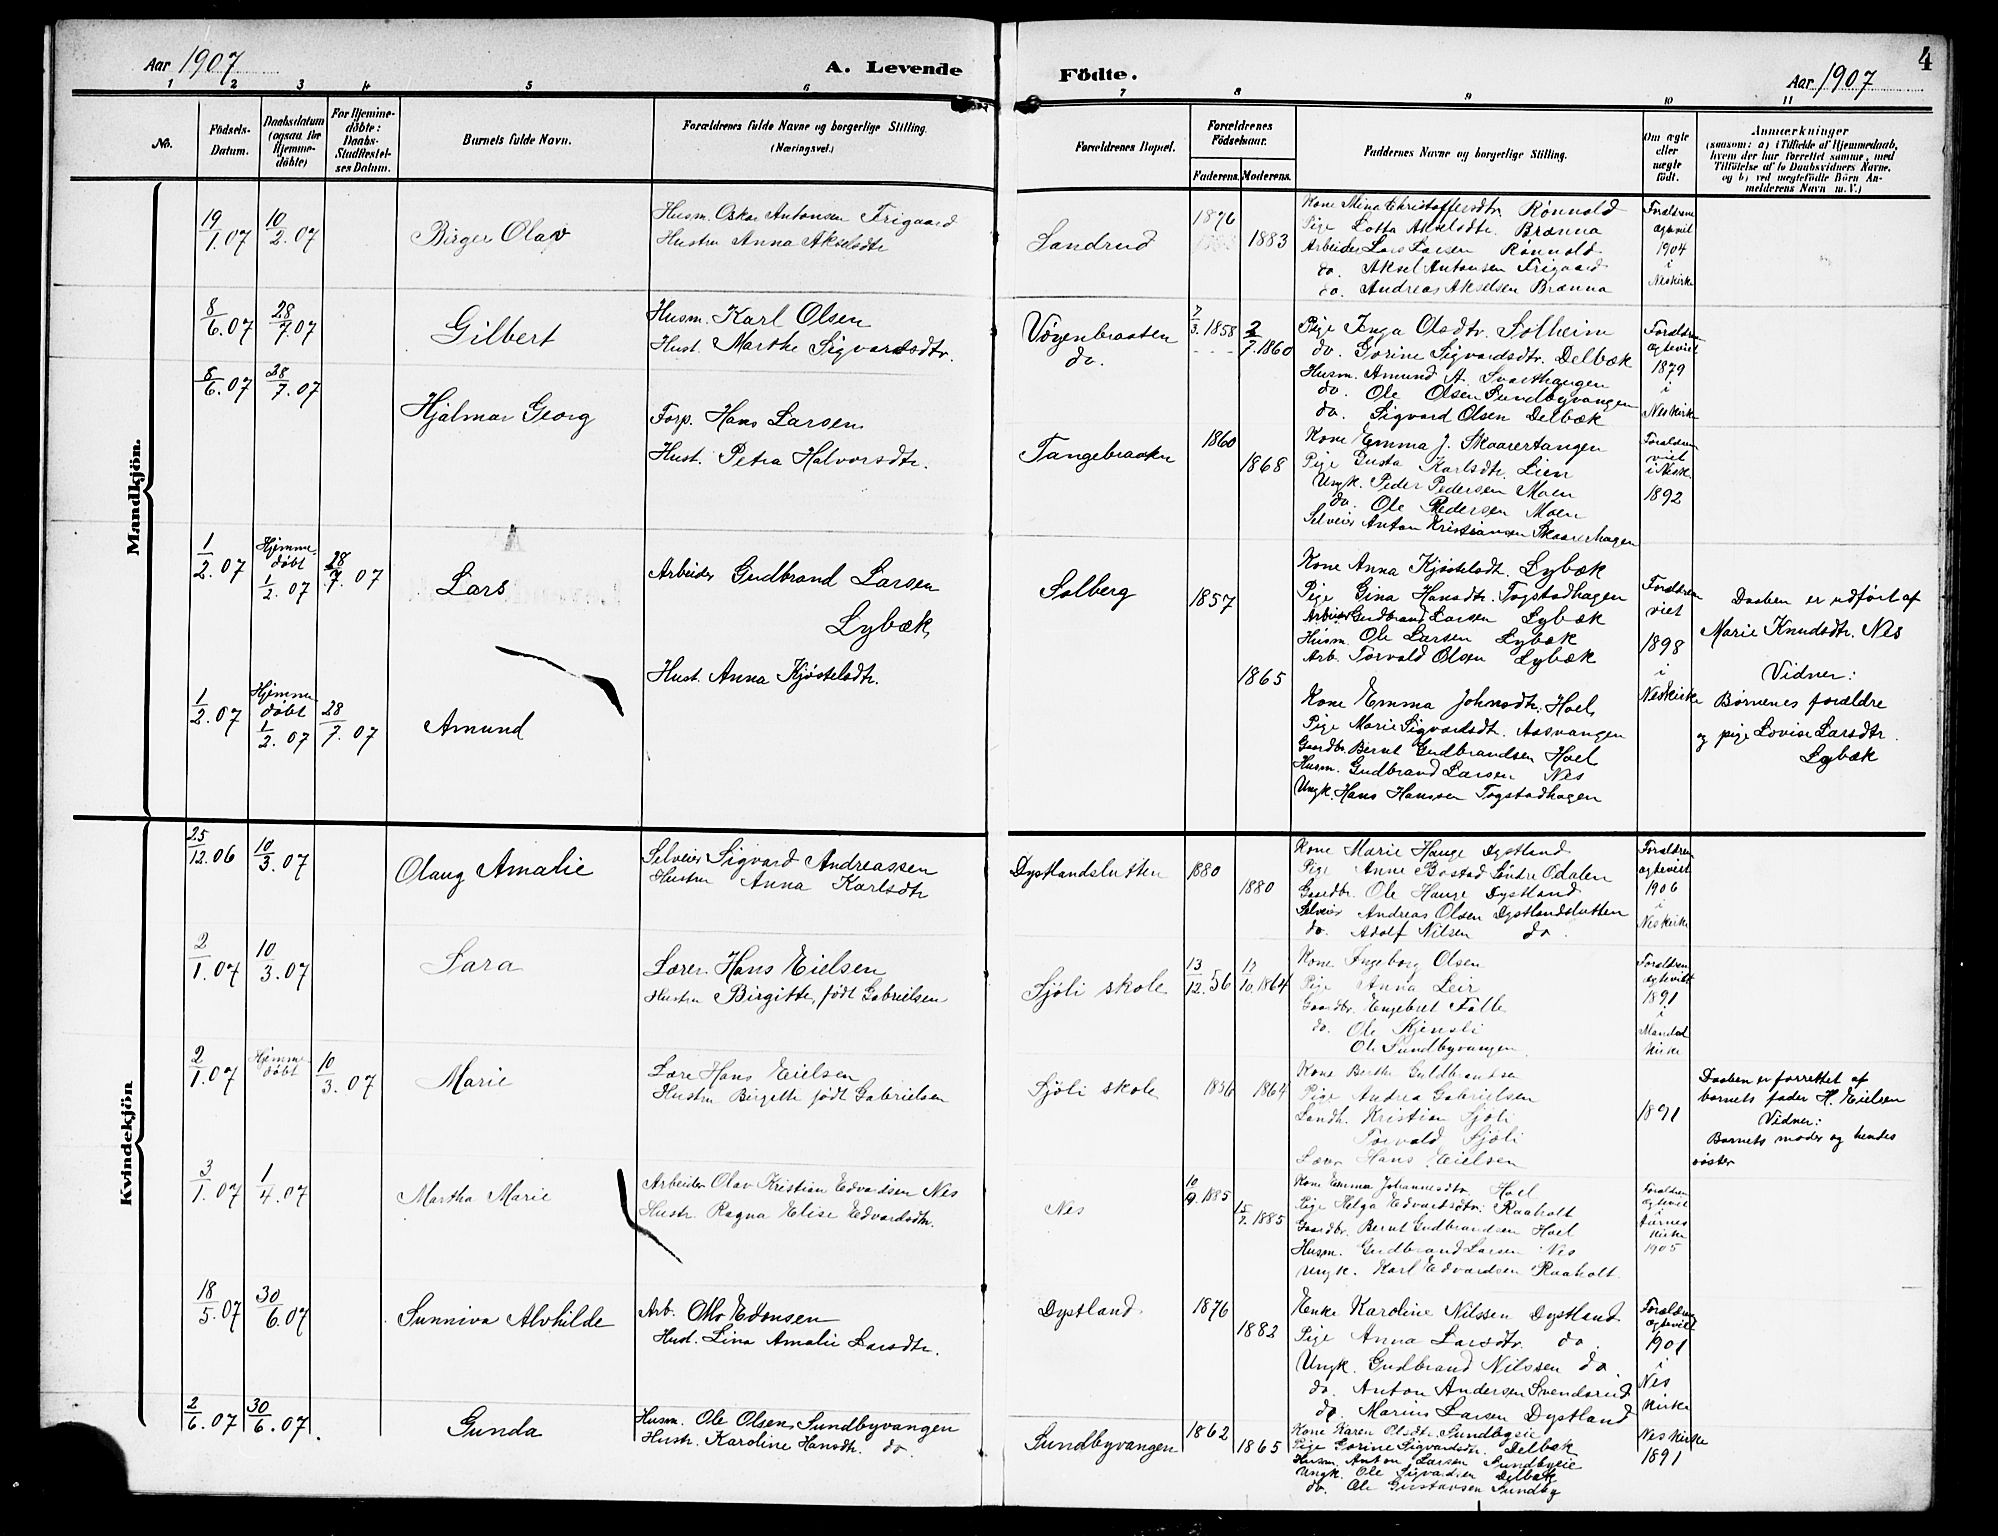 Aar 1907
A. Levende
Födte.
Aar 1907
4
1 2 3 4 5 6 7 8 9 10 11
No.
Födsels-
Datum.
Daabsdatum
(ogsaa for
Hjemme-
döbte)
For Hjemme-
döbte:
Daabs-
Stadfæstel-
ses Datum.
Barnets fulde Navn.
Forældrenes fulde Navne og borgerlige Stilling.
(Næringsvei.)
Forældrenes Bopæl.
Forældrenes
Födselsaar.
Faderens. Moderens.
Faddernes Navne og borgerlige Stilling.
Om ægte
eller
uægte
födt.
Anmærkninger
(saasom: a) i Tilfælde af Hjemmedaab,
hvem der har forrettet samme, med
Tilföielse af to Daabsvidners Navne,
og b) ved uægtefödte Börn An-
melderens Navn m. V.)
Mandkjön.
19/1.07 10/2.07
Birger Olav
Husm. Oskar Antonsen Frigaard
Hustru Anna Akselsdtr
Sandrud
1876
1883
Kone Mina Christoffersdtr. Rønnold
Pige Lotta Akselsdtr. Brænna
Arbeider Lars Larsen Rønnold
do. Aksel Antonsen Frigaard
do. Andreas Akselsen Brænna
Forældrene
ægteviet
1904
i
Nes kirke
8/6.07 28/7.07
Gilbert
Husm. Karl Olsen
Hust. Marthe Sigvardsdtr.
Vøyenbraaten
do.
7/3.1858 2/7.1860
Pige Inga Olsdtr. Solheim
do. Gorine Sigvardsdtr. Delbæk
Husm. Amund A. Svarthaugen
do. Ole Olsen Sundbyvangen
do. Sigvard Olsen Delbæk
Forældren
ægteviet
1879
i
Nes kirke
8/6.07 28/7.07
Hjalmar Georg
Forp. Hans Larsen
Hust. Petra Halvorsdtr.
Tangebraaten
1860
1868
Kone Emma J. Skaarertangen
Pige Gusta Karlsdtr. Lien
Ungk. Peder Pedersen Moen
do. Ole Pedersen Moen
Selveier Anton Kristiansen Skaarerhagen
Forældren
viet
i Nesk.
1892
1/2.07
Hjemme-
døbt
1/2.07
28/7.07
Lars
Arbeider Gudbrand Larsen
Lybæk
Hust. Anna Kjøstelsdtr.
Solberg
1857
1865
Kone Anna Kjøstelsdtr. Lybæk
Pige Gina Hansdtr. Togstadhagen
Arbeider Gudbrand Larsen Lybæk
Husm. Ole Larsen Lybæk
Arb. Torvald Olsen Lybæk
Forældren
viet
1898
i
Nes kirke
Daaben er udført af
Marie Knudsdtr. Nes
Vidner:
Børnenes forældre
og pige Lovise Larsdtr.
Lybæk
1/2.07
Hjemme
døbt
1/2.07
28/7.07
Amund
Kone Emma Johnsdtr. Hoel
Pige Marie Sigvardsdtr. Aasvangen
Gaardbr. Bernt Gudbrandsen Hoel
Husm. Gudbrand Larsen Nes
Ungk. Hans Hanssen Togstadhagen
Kvindekjön
25/12.06 10/3.07
Olaug Amalie
Selveier Sigvard Andreassen
Hustru Anna Karlsdtr
Dystlandslutten
1880
1880
Kone Marie Hauge Dystland
Pige Anne Bostad Søndre Odalen
Gaardbr. Ole Hauge Dystland
Selveier Andreas Olsen Dystlandslutten
do. Adolf Nilsen do.
Forældren
ægteviet
1906
i
Nes kirke
2/1.07 10/3.07
Sara
Lærer Hans Eielsen
Hustru Birgitte, født Gabrielsen
Sjøli skole
13/12.56 17/10.1864
Kone Ingeborg Olsen
Pige Anna Leir
Gaardbr. Engebret Falle
do. Ole Kjensli
Ole Sundbyvangen
Forældren
ægteviet
1891
i
Mandal
kirke
2/1.07
Hjemme
døbt
10/3.07
Marie
Lære Hans Eielsen
Hustru Birgitte født Gabrielsen
Sjøli skole
1856 1864
Kone Berthe Guldbrandsen
Pige Andrea Gabrielsen
Landh. Kristian Sjøli
Torvald Sjøli
Lærer Hans Eielsen
1891
Daaben er forrettet af
barnets fader H. Eielsen
Vidner:
Barnets moder og hendes
søster
3/1.07 1/4.07
Martha Marie
Arbeider Olav Kristian Edvardsen Nes
Hustr. Ragna Elise Edvardsdtr.
Nes
10/9.1885
15/7.1885
Kone Emma Johannesdtr. Hoel
Pige Helga Edvardsdtr. Raaholt
Gaardbr. Bernt Gudbrandsen Hoel
Husm. Gudbrand Larsen Nes
Ungk. Karl Edvardsen Raaholt.
Forældren
ægteviet
i
Aarnes
kirke
1905
18/5.07 30/6.07
Sunniva Alvhilde
Arb. Otto Edensen
Hust. Lina Amalie Larsdtr.
Dystland
1876
1882
Enke Karoline Nilssen Dystland
Pige Anna Larsdtr. do.
Ungk. Gudbrand Nilssen do.
do. Anton Andersen Svendsrud
do. Marius Larsen Dystland
Forældren
ægteviet
1901
i
Nes
kirke
2/6.07 30/6.07.
Gunda
Husm. Ole Olsen Sundbyvangen
Hustr. Karoline Hansdtr. do.
Sundbyvangen
1862
1865
Kone Karen Olsdtr. Sundbyeie
Pige Gorine Sigvardsdtr. Delbæk
Husm. Anton Larsen Sundbyeie
Ungk. Ole Sigvardsen Delbæk
do. Ole Gustavsen Sundby
Nes kirke
1891